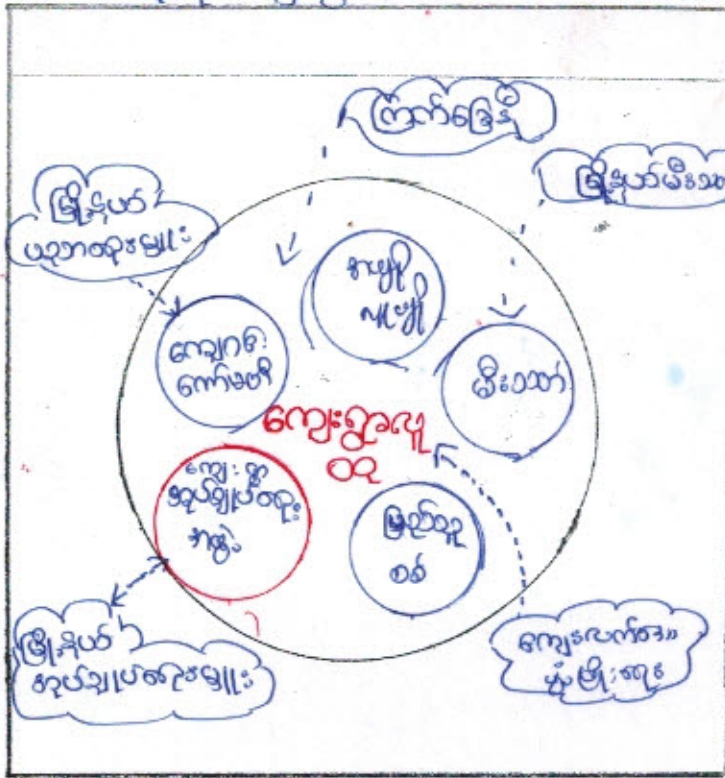 ကြက်ခြေနီ
မြို့နယ်မီးသတ်
မြို့နယ်
ယုဘထူးမှူး
ကျေးဂစ
ကော်မတီ
မီးသတ်
ကျေးရွာလူ
ထု
ကျေးရွာ
အုပ်ချုပ်ရေး
အဖွဲ့
ပြည်သူ့
စစ်
မြို့နယ်
အုပ်ချုပ်ရေးမှူး
ကျေးလက်ဒေသ
ဖွံ့ဖြိုးရေး